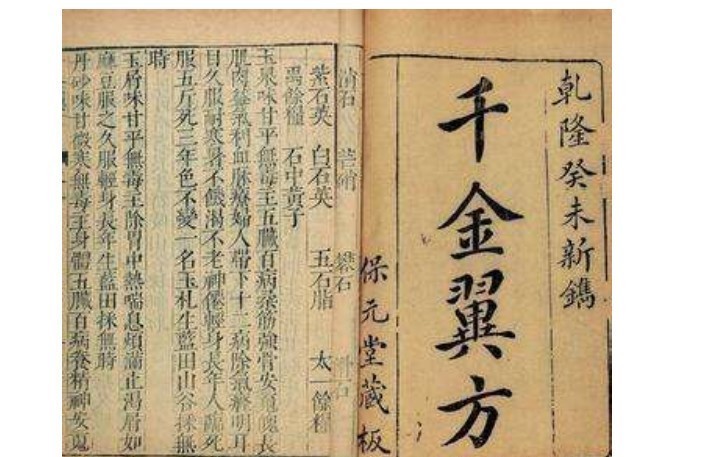 乾隆癸未新鐫
千金翼方
保元堂藏板
紫石英 白石英 五石脂 太一餘糧
禹餘糧 石中黃子
玉泉味甘平無毒主五臟百病柔筋強骨安魂魄長
肌肉益氣利血脉療婦人帶下十二病除氣癃明耳
目久服耐寒暑不饑渴不老神僊輕身長年人臨死
服五斤死三年色不變一名玉札生藍田山谷採無
時
玉屑味甘平無毒主除胃中熱喘息煩滿止渴屑如
麻豆服之久服輕身長年生藍田採無時
丹砂味甘微寒無毒主身體五臟百病養精神安魂